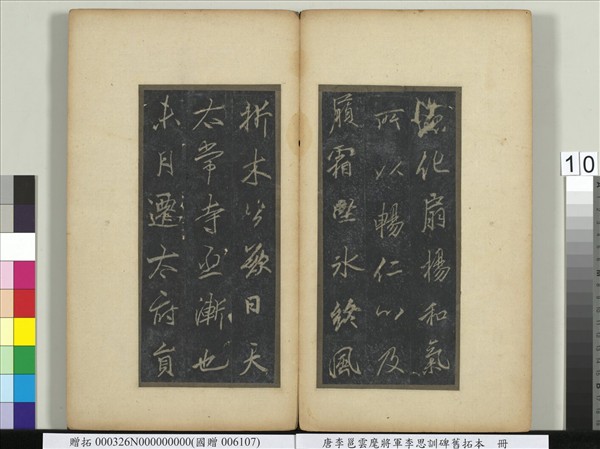 化扇揚和氣
所以暢仁心及
履霜堅冰終風
折木公歎曰天
太常寺丞漸也
未月遷太府員
10
贈拓 000326N000000000(國贈 006107)
唐李邕雲麾將軍李思訓碑舊拓本 冊